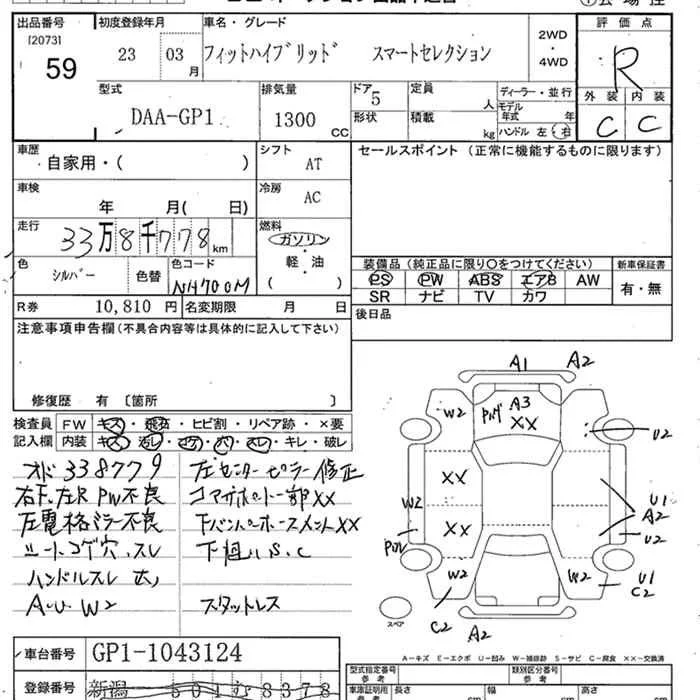 出品番号 初度登録年月 車名・グレード 評価点
[2073] 59 23 03月 フィットハイブリッド スマートセレクション 2WD・4WD R
外装 内装
C C
型式 排気量 ドア 定員 ディーラー・並行
DAA-GP1 1300cc 5 人 モデル年式 年
形状 積載 kg ハンドル 左・右
車歴 シフト セールスポイント (正常に機能するものに限ります)
自家用・( ) AT
車検 冷房
年 月( 日) AC
走行 燃料
33万8千778km ガソリン・軽・油
( )
色 色コード 装備品(純正品に限り○をつけてください) 新車保証書
シルバー 色替 NH700M PS PW ABS エアB AW 有・無
SR ナビ TV カワ
R券 10,810円 名変期限 月 日 後日品
注意事項申告欄(不具合内容等は具体的に記入して下さい)
修復歴 有 〔箇所 〕
検査員 FW キズ・飛石・ヒビ割・リペア跡・×要
記入欄 内装 キズ・汚レ・コゲ・穴・スレ・キレ・破レ
オド338779 左センターピラー修正
右F、左R PW不良 コアサポート一部XX
左電格ミラー不良 FバンパーホースメントXX
シートコゲ穴、スレ 下廻りS、C
ハンドルスレ 大
A.U W2 スタットレス
A1 A2
W2 A3 XX
U2
XX
W2 U1
A2
XX U2
W2 W2 U1
C2
C2
スペア A2
A-キズ E-エクボ U-凹み W-補修跡 S-サビ C-腐食 XX-交換済
車台番号 GP1-1043124
型式指定番号 参考 類別区分番号 参考
登録番号 新潟
車庫証明用 参考 長さ cm 幅 cm 高さ cm